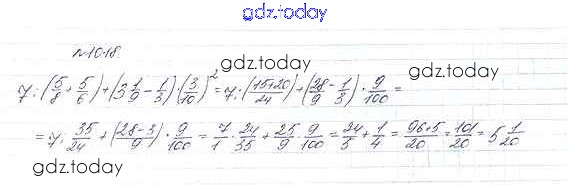 gdz.today
№1018.
gdz.today
7:(5/8+5/6)+(3 1/9-1/3)·(3/10)²=7:(15+20/24)+(28/9-1/3)·9/100=
=7:35/24+(28-3/9)·9/100=7/1·24/35+25/9·9/100=24/5+1/4=96+5/20=101/20=5 1/20
gdz.today
gdz.today